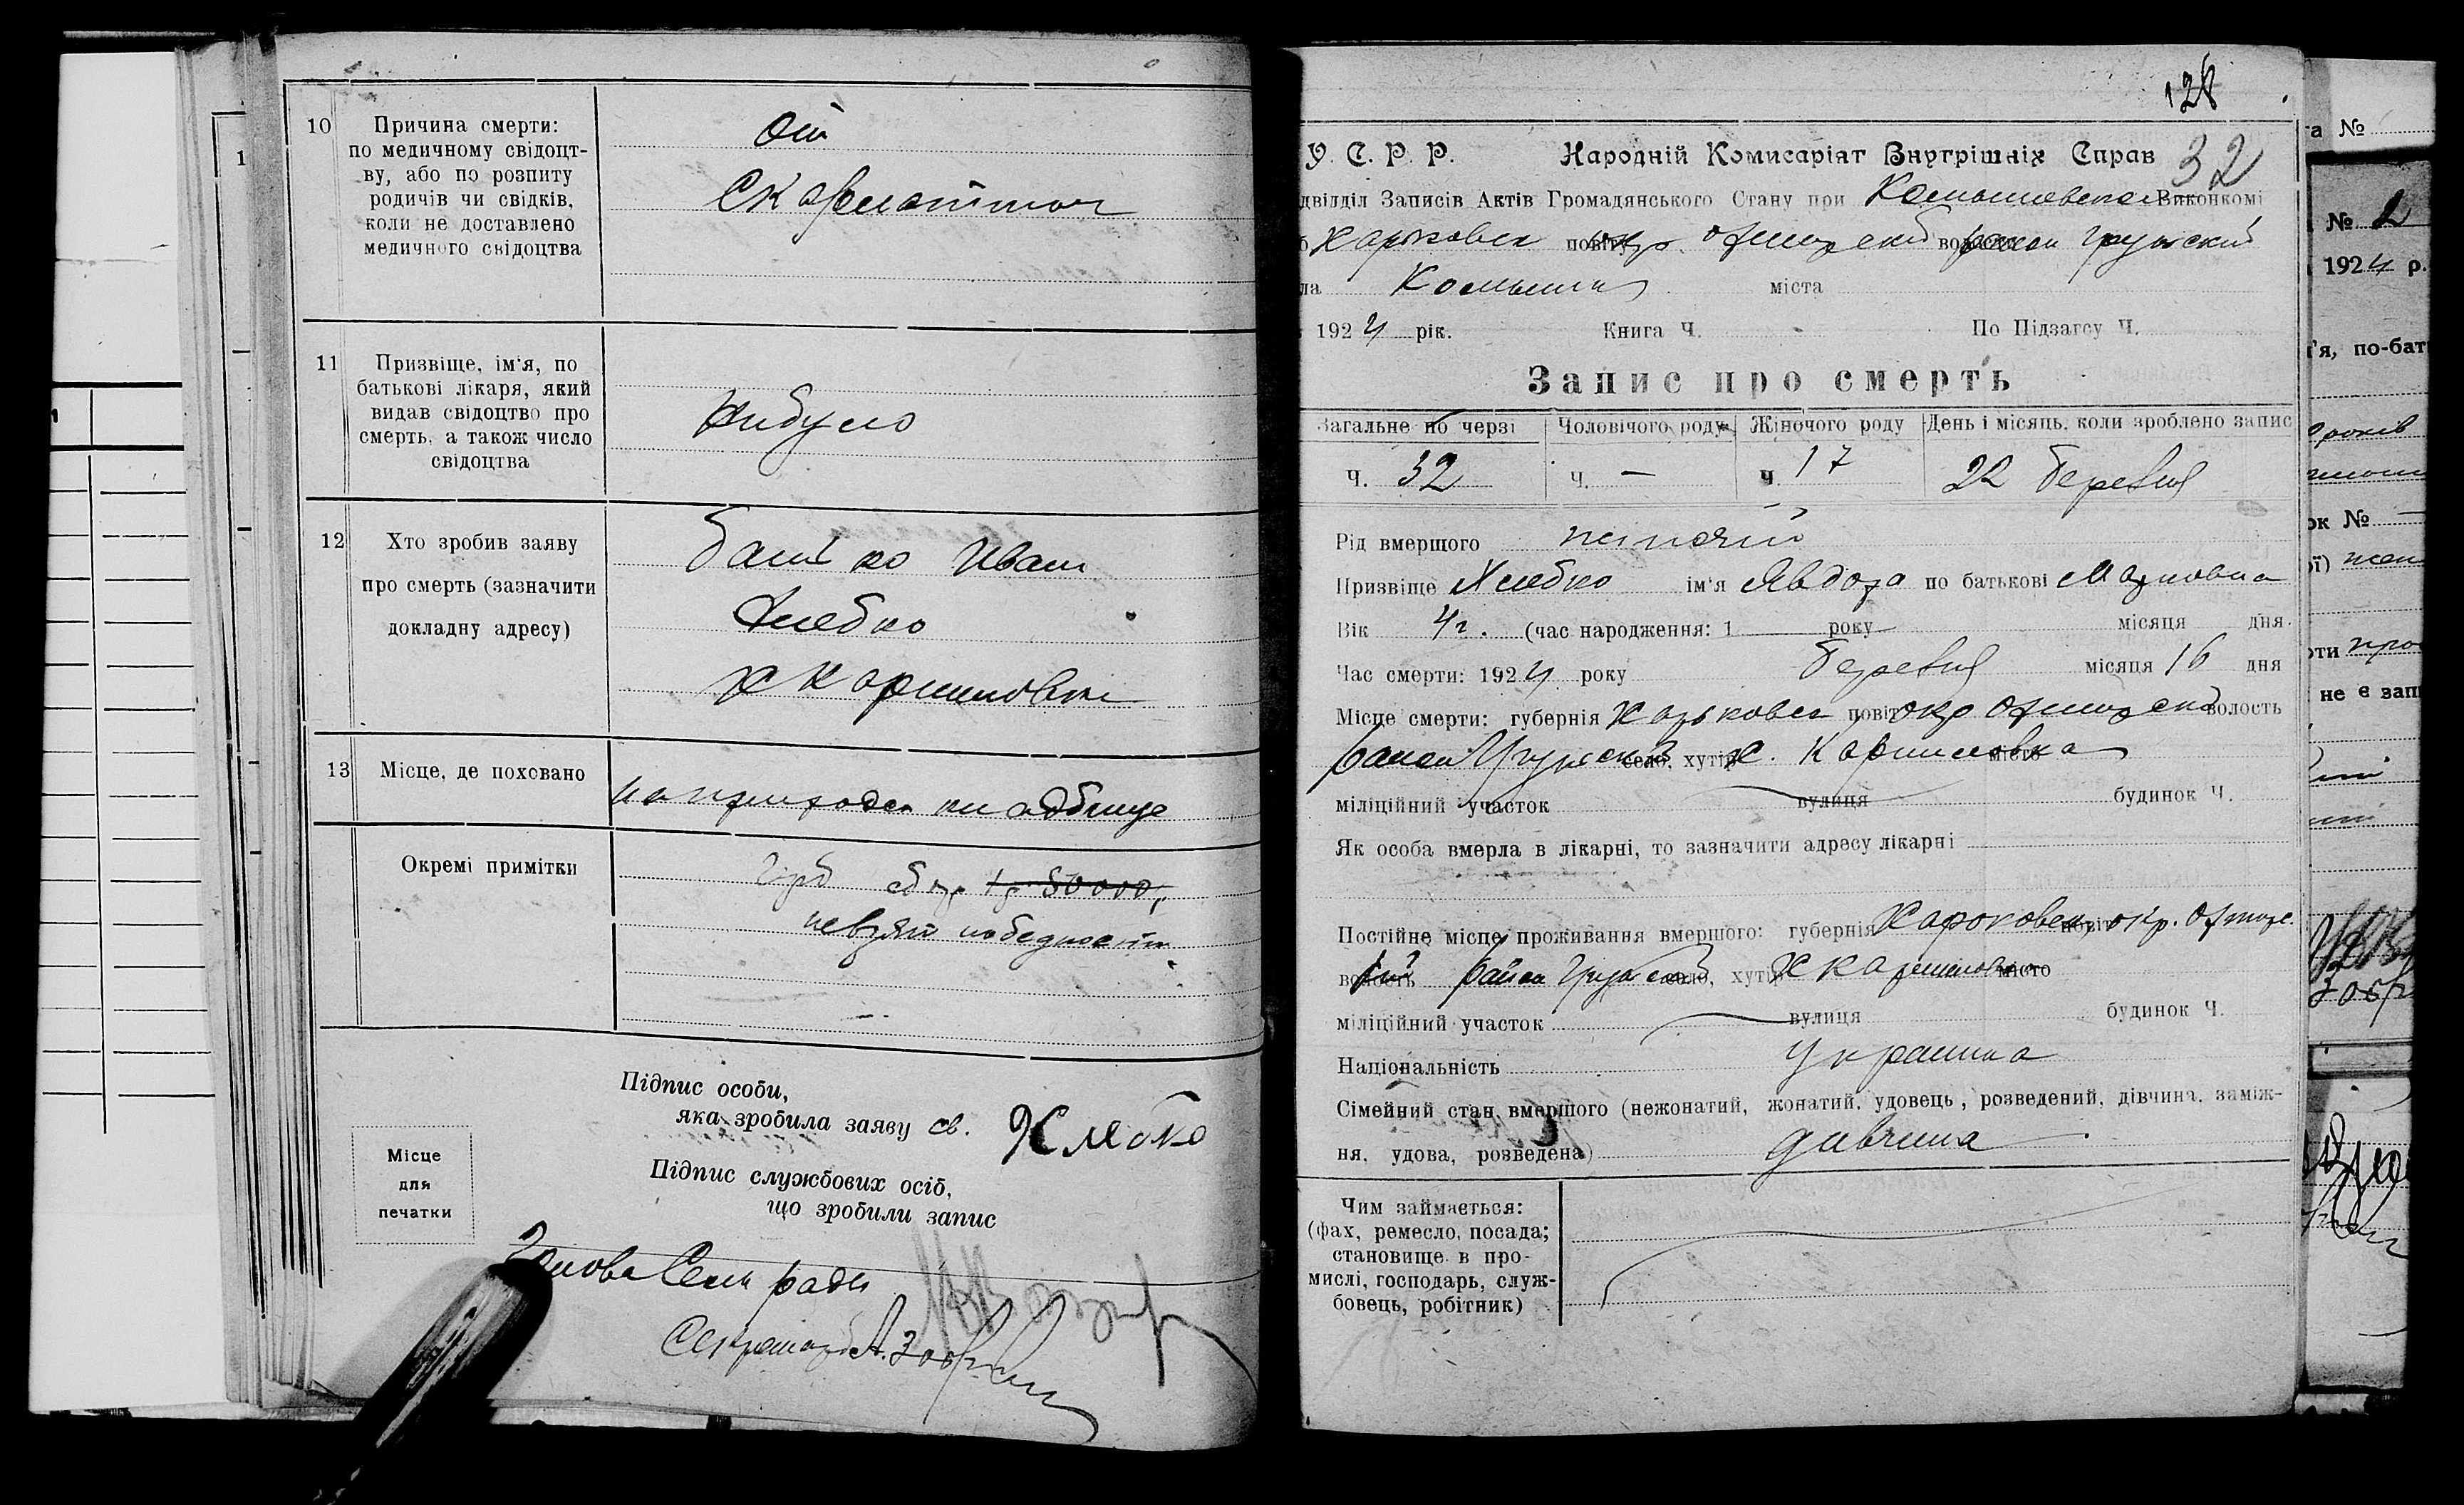 10
Причина смерти:
по медичному свідоцт-
ву, або по розпиту
родичів чи свідків,
коли не доставлено
медичного свідоцтва
От
Скарлатини
11
Призвіще, ім'я, по
батькові лікаря, який
видав свідоцтво про
смерть, а також число
свідоцтва
Небуло
12
Хто зробив заяву
про смерть (зазначити
докладну адресу)
батько Иван
Хлебко
х Каришовки
13
Місце, де поховано
на приходск кладбище
Окремі примітки
Герб сбор 1р 50000,
невзят по бедности
Підпис особи,
яка зробила заяву св. Хлебко
Підпис службових осіб,
що зробили запис
Місце
для
печатки
Голова Сель ради
Секретарь А.
128
32
У. С. Р. Р. Народній Комисаріят Внутрішніх Справ
двідділ Записів Актів Громадянського Стану при Виконкомі
Харьковск повіту окр. волости район Грунский
ла Комыши міста
1924 рік. Книга Ч. - По Підзагсу Ч.
Запис про смерть
Загальне по черзі Чоловічого роду Жіночого роду День і місяць, коли зроблено запис
Ч. 32 Ч. — Ч. 17 22 березня
Рід вмерщого жіночий
Призвіще Хлебко ім'я Явдоха по батькові
Вік 4 г. (час народження: 1 року місяця дня.
Час смерти: 1924 року березня місяця 16 дня
Місце смерти: губернія Харьковск повіт окр волость
район Грунский село, хутір х. Каришовка місто
міліційний участок вулиця будинок Ч.
Як особа вмерла в лікарні, то зазначити адресу лікарні
Постійне місце проживання вмершого: губернія Харьковск повіт окр.
волость район Грунский село, хутір х Каришовка місто
міліційний участок вулиця будинок Ч.
Національність Украинка
Сімейний стан вмершого (нежонатий, жонатий, удовець, розведений, дівчина, заміж-
ня, удова, розведена) дивчина
Чим займається:
(фах, ремесло, посада;
становище в про-
мислі, господарь, служ-
бовець, робітник)
та №
№ 2
1924 р.
'я, по-бат
років
ок №
не є зап